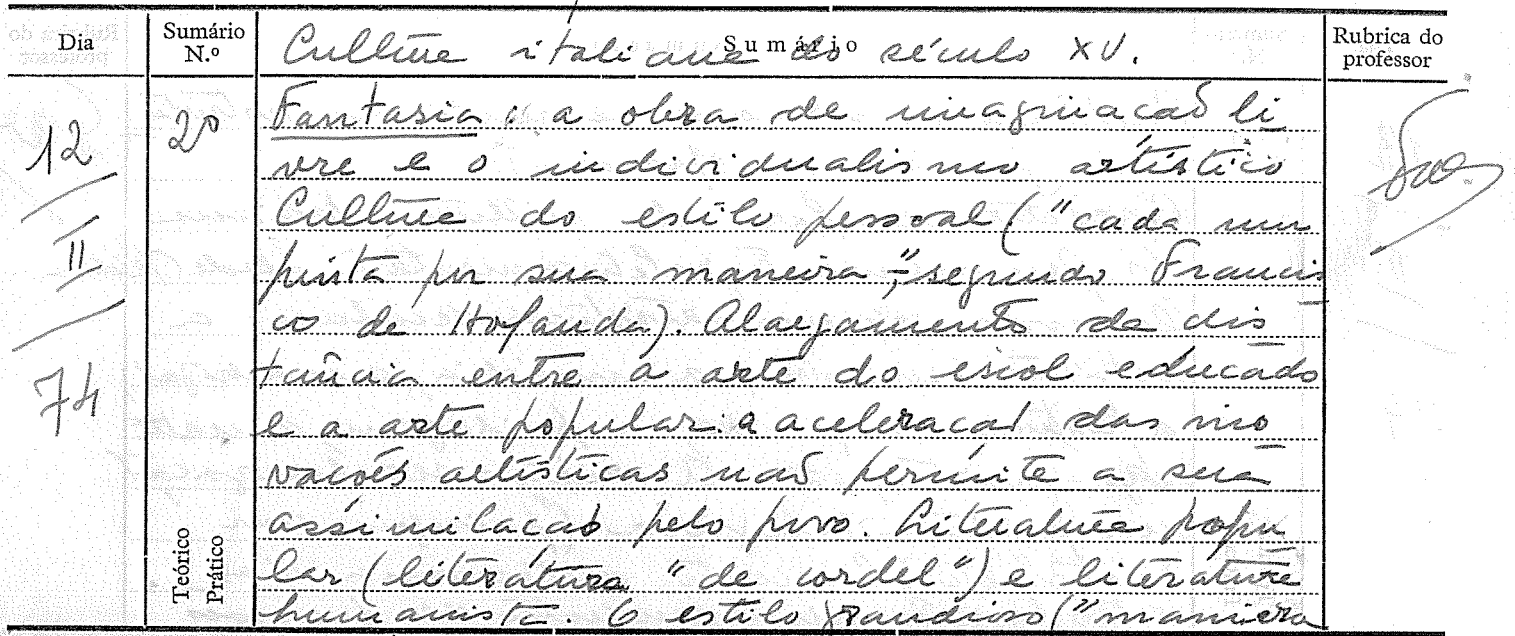 Dia
Sumário N.º
Sumário
Rubrica do professor
Cultura italiana do século XV.
12
II
74
2º
Fantasia: a obra de imaginação li
vre e o individualismo artístico
Cultura do estilo pessoal ("cada um
pinta por sua maneira", segundo Francis
co de Holanda). Alargamento da dis
tância entre a arte do escol educado
e a arte popular: a aceleração das ino
vações artísticas não permite a sua
assimilação pelo povo. Literatura popu
lar (literatura "de cordel") e literatura
humanista. O estilo grandioso ("maniera
Teórico
Prático